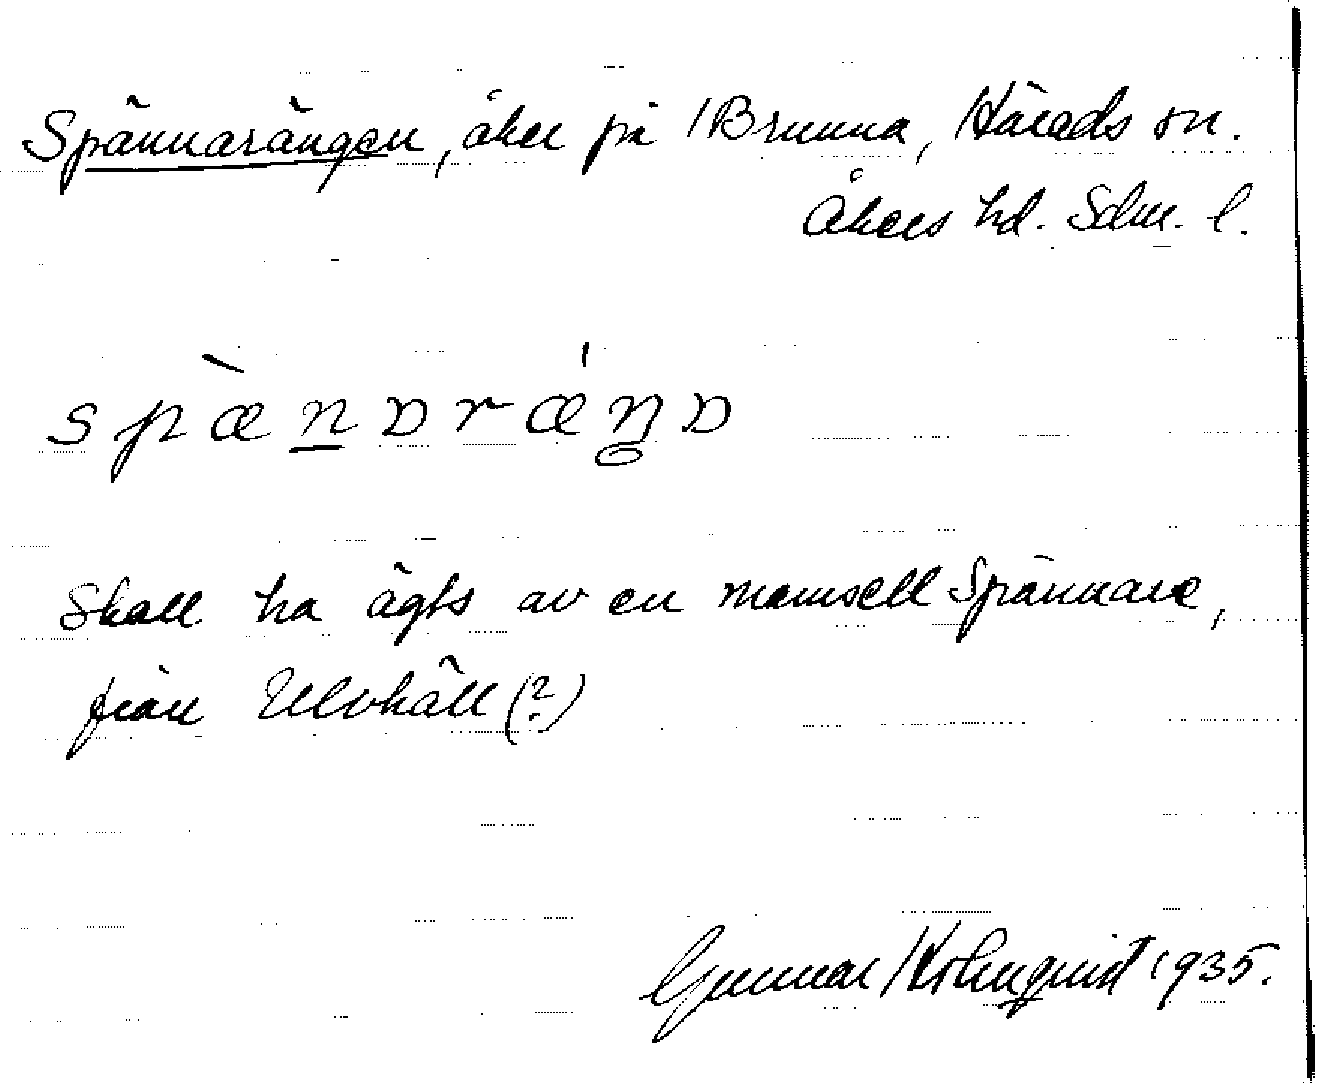 Spännarängen, åker på Brunna, Härads sn.
Åkers hd. Sdm. l.
spæ̀nɒrǽŋɒ
Skall ha ägts av en mamsell Spännare,
från Ulvhäll (?)
Gunnar Holmquist 1935.